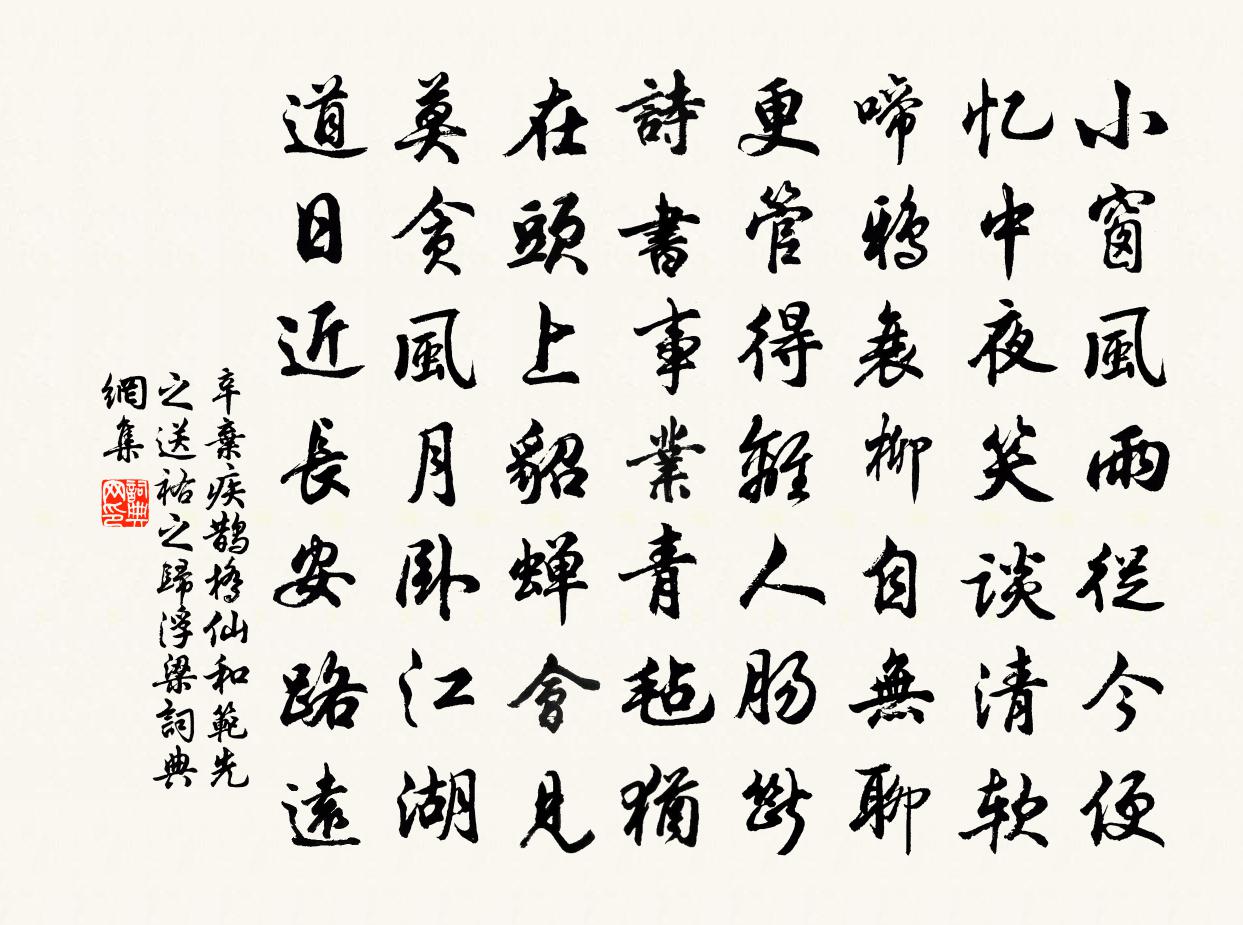 小窗風雨從今便
忆中夜笑談清软
啼鴉衰柳自無聊
更管得離人肠斷
詩書事業青毡猶
在頭上貂蝉會見
莫贪風月卧江湖
道日近長安路遠
辛棄疾鵲橋仙和範先
之送祐之歸浮梁詞典
網集
詞典网印